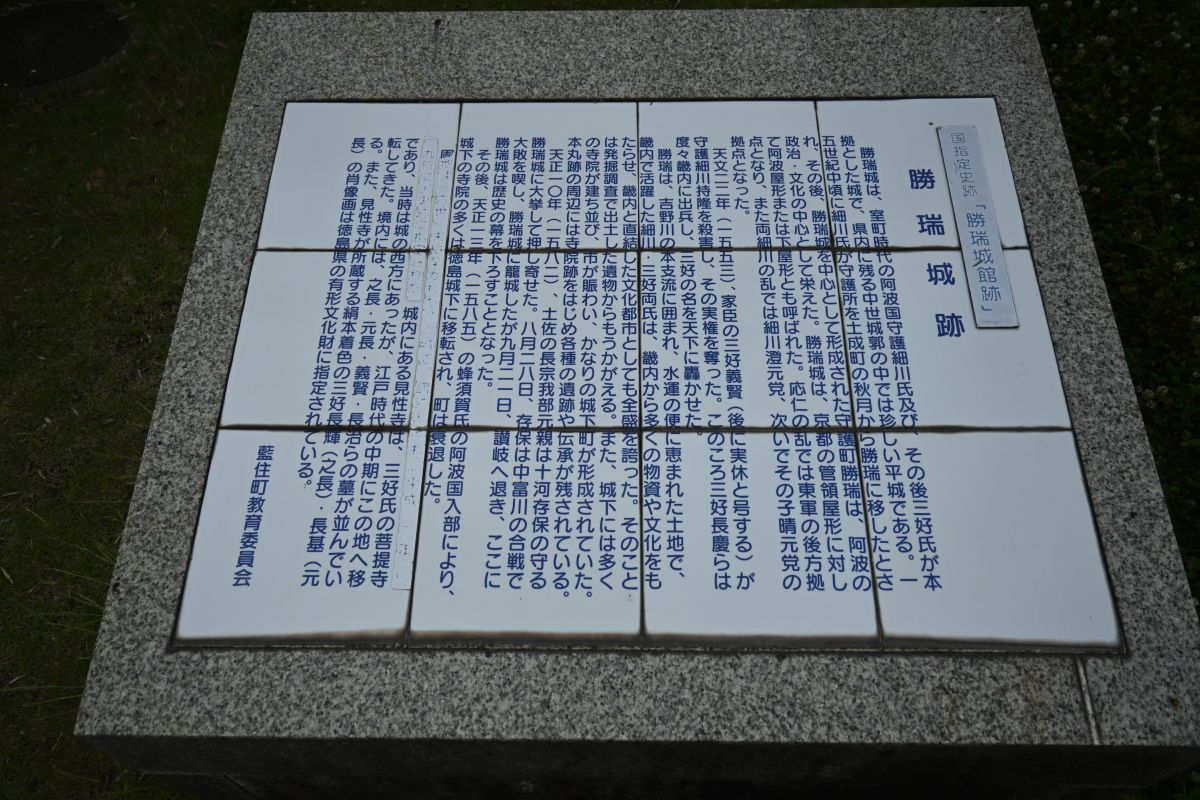 国指定史跡「勝瑞城館跡」
勝瑞城跡
勝瑞城は、室町時代の阿波国守護細川氏及び、その後三好氏が本
拠とした城で、県内に残る中世城郭の中では珍しい平城である。一
五世紀中頃に細川氏が守護所を土成町の秋月から勝瑞に移したとさ
れ、その後、勝瑞城を中心として形成された守護町勝瑞は、阿波の
政治・文化の中心として栄えた。勝瑞城は、京都の管領屋形に対し
て阿波屋形または下屋形とも呼ばれた。応仁の乱では東軍の後方拠
点となり、また両細川の乱では細川澄元党、次いでその子晴元党の
拠点となった。
天文二二年（一五五三）、家臣の三好義賢（後に実休と号する）が
守護細川持隆を殺害し、その実権を奪った。このころ三好長慶らは
度々畿内に出兵し、三好の名を天下に轟かせた。
勝瑞は、吉野川の本支流に囲まれ、水運の便に恵まれた土地で、
畿内で活躍した細川・三好両氏は、畿内から多くの物資や文化をも
たらせ、畿内と直結した文化都市としても全盛を誇った。そのこと
は発掘調査で出土した遺物からもうかがえる。また、城下には多く
の寺院が建ち並び、市が賑わい、かなりの城下町が形成されていた。
本丸跡の周辺には寺院跡をはじめ各種の遺跡や伝承が残されている。
天正一〇年（一五八二）、土佐の長宗我部元親は十河存保の守る
勝瑞城に大挙して押し寄せた。八月二八日、存保は中富川の合戦で
大敗を喫し、勝瑞城に籠城したが九月二一日、讃岐へ退き、ここに
勝瑞城は歴史の幕を下ろすこととなった。
その後、天正一三年（一五八五）の蜂須賀氏の阿波国入部により、
城下の寺院の多くは徳島城下に移転され、町は衰退した。
城内にある見性寺は、三好氏の菩提寺
であり、当時は城の西方にあったが、江戸時代の中期にこの地へ移
転してきた。境内には、之長・元長・義賢・長治らの墓が並んでい
る。また、見性寺が所蔵する絹本着色の三好長輝（之長）・長基（元
長）の肖像画は徳島県の有形文化財に指定されている。
藍住町教育委員会